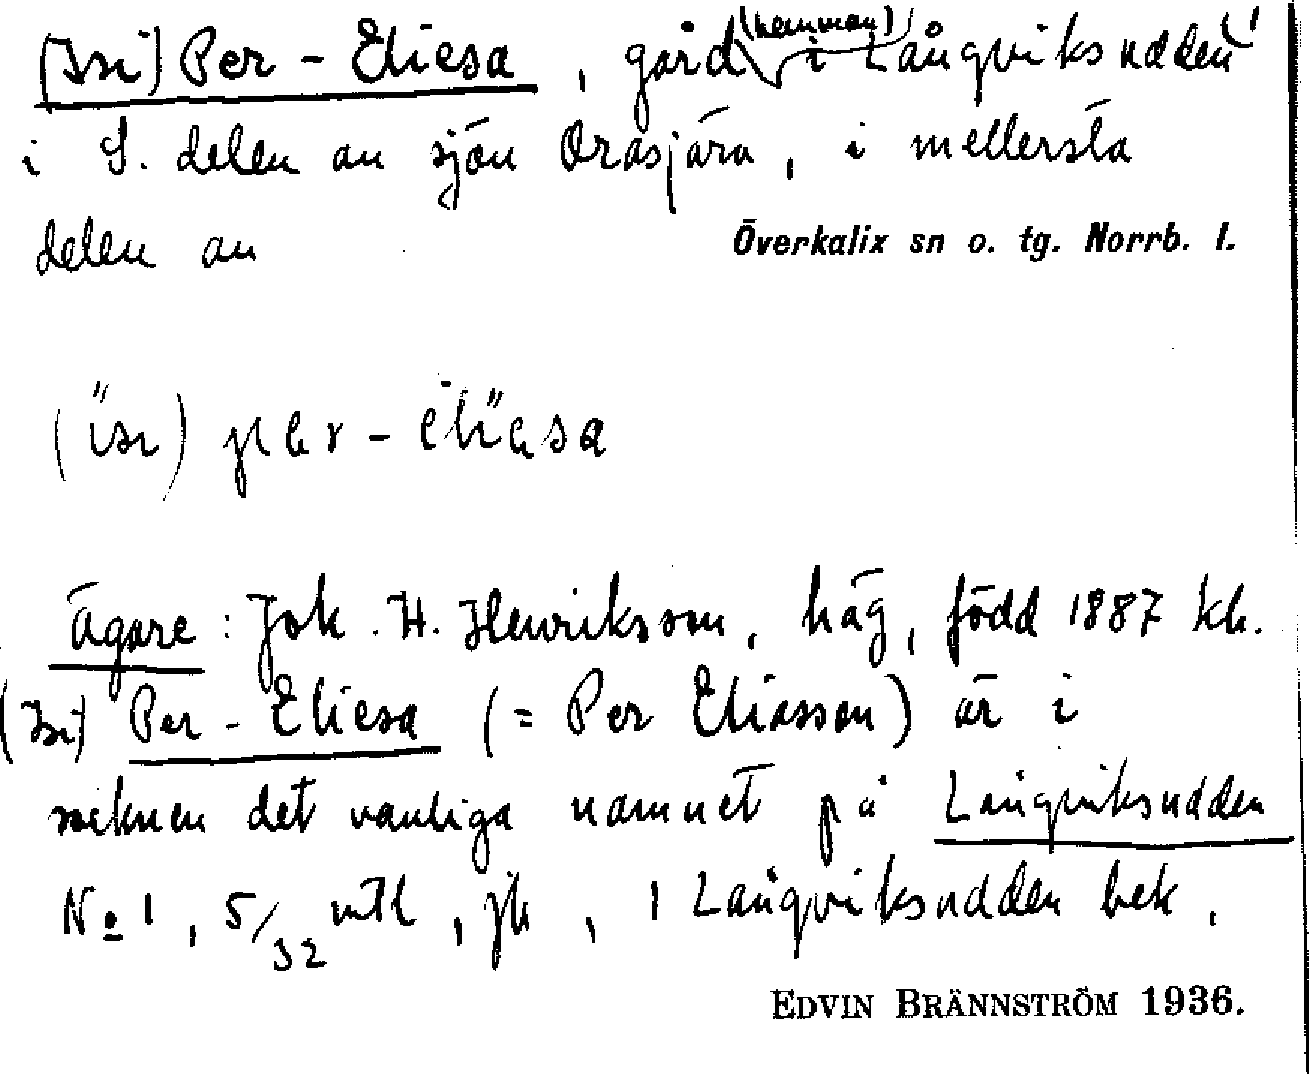 (Isi) Per-Eliesa, gård (hemman) i Långviksudden 1
i S. delen av sjön Oräsjärv, i mellersta
delen av Överkalix sn o. tg. Norrb. l.
per-eliesa
Ägare: Joh. H. Henriksson, häg, född 1887 kh.
(Isi) Per-Eliesa (= Per Eliasson) är i
socknen det vanliga namnet på Långviksudden
No 1, 5/32 mtl, jk, i Långviksudden bek.
EDVIN BRÄNNSTRÖM 1936.